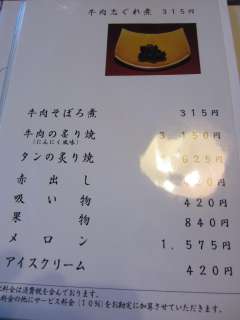 牛肉志ぐれ煮 315円
牛肉そぼろ煮 315円
牛肉の炙り焼 3,150円
(にんにく風味)
タンの炙り焼 625円
赤出し 420円
吸い物 420円
果物 840円
メロン 1,575円
アイスクリーム 420円
料金は消費税を含んでおります。
料金の他にサービス料金(10%)をお勘定に加算させていただきます。